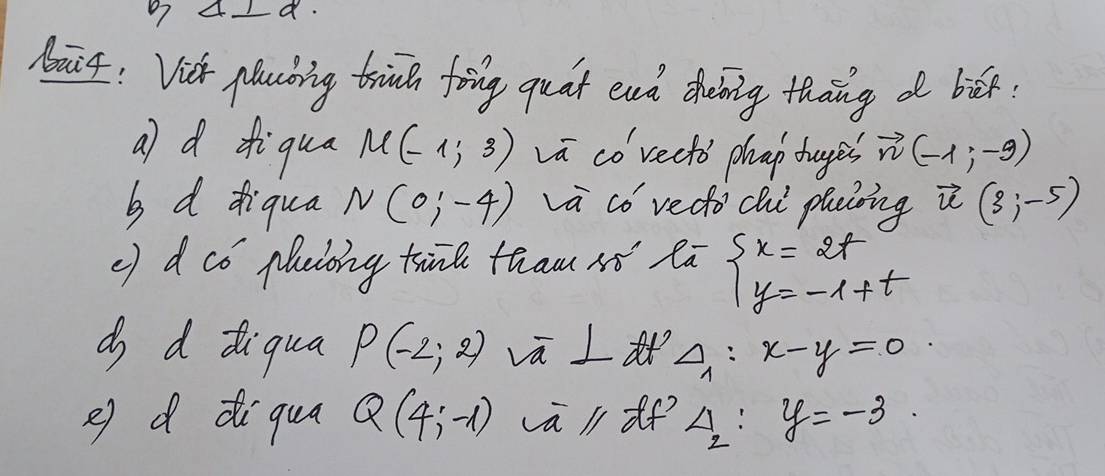 b) Δ ⊥ d.
bài 4: Viết phương trình tổng quát của đường thẳng d biết:
a) d đi qua M(-1; 3) và có vectơ pháp tuyến n⃗ (-1; -9)
b) d đi qua N (0; -4) và có vectơ chỉ phương u⃗ (3; -5)
c) d có phương trình tham số là { x = 2t
y = -1 + t
d) d đi qua P(-2; 2) và ⊥ đt Δ₁: x - y = 0.
e) d đi qua Q (4; -1) và // đt Δ₂: y = -3.